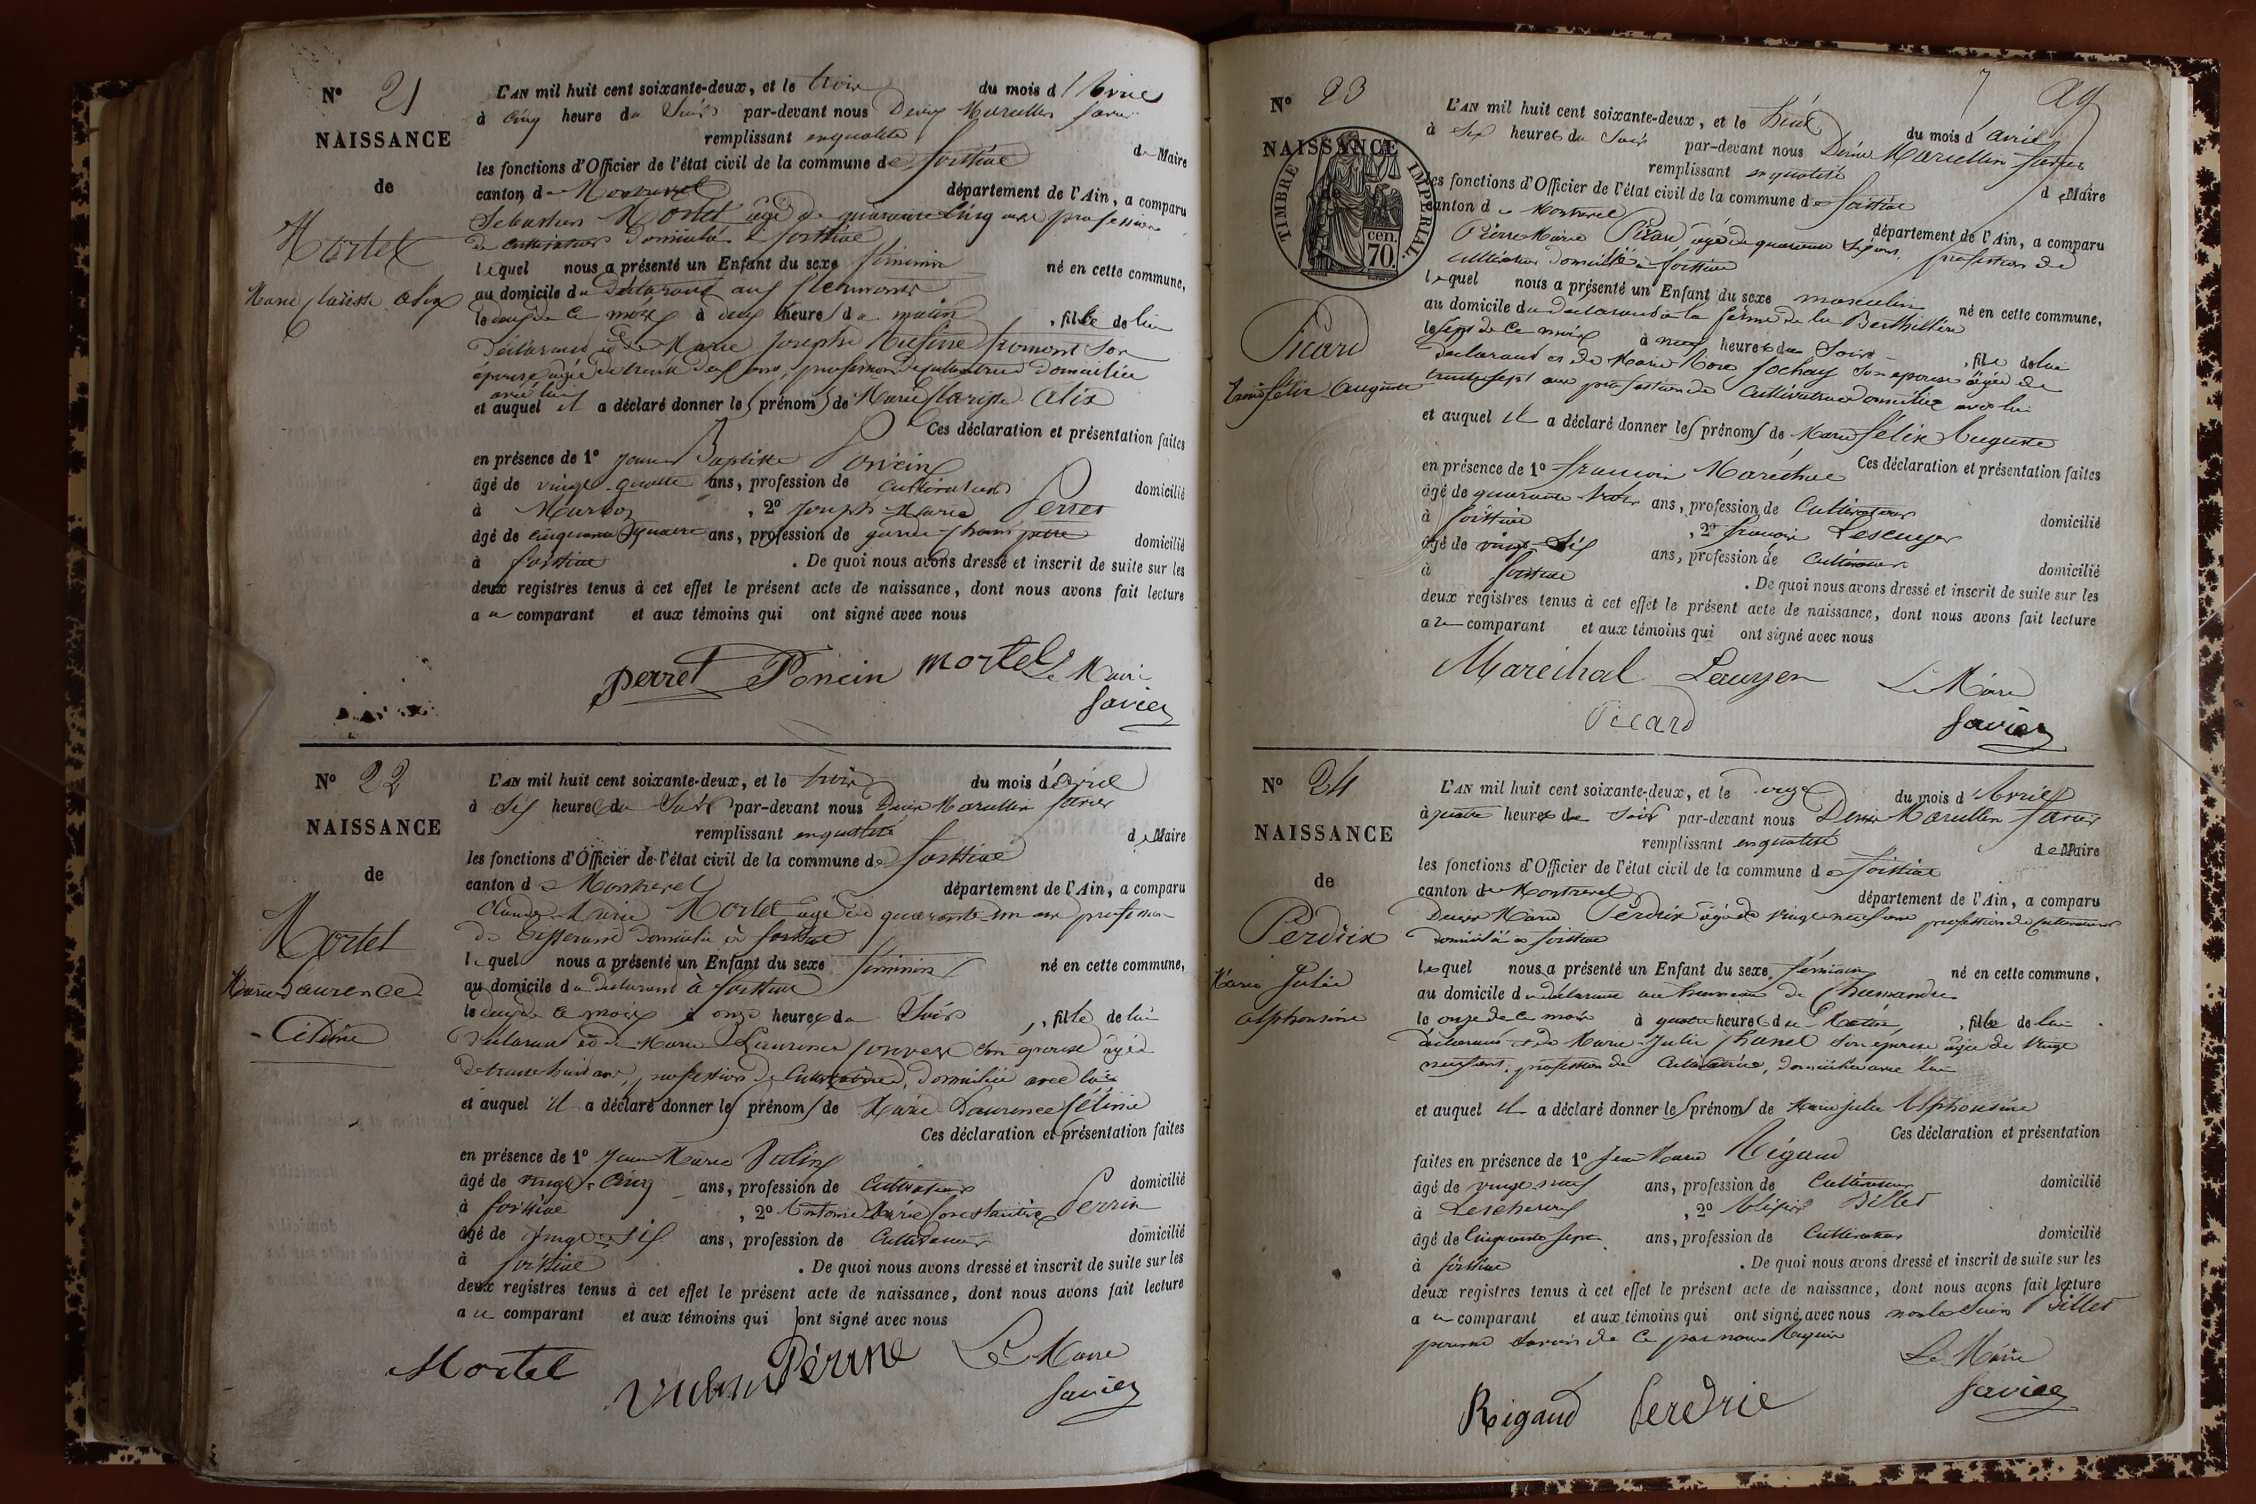 N° 21
NAISSANCE
de
Mortel
L'AN mil huit cent soixante-deux, et le trois du mois d'Avril
à cinq heure du Soir par-devant nous Marcellin
remplissant en qualité de Maire
les fonctions d'Officier de l'état civil de la commune de foissiat
canton de Montrevel département de l'Ain, a comparu
Sebastien Mortel agé de quarante cinq ans profession
de cultivateur domicilié à foissiat
lequel nous a présenté un Enfant du sexe féminin né en cette commune,
au domicile du déclarant
le deux de ce mois à deux heures du matin, fille de lui
déclarant et de Marie Josephe froment son
épouse agée de trente deux ans, profession de cultivatrice domiciliée
avec lui
et auquel il a déclaré donner les prénoms de Marie Clarisse Alix
Ces déclaration et présentation faites
en présence de 1° Jean Baptiste Poncin
âgé de vingt quatre ans, profession de cultivateur domicilié
à Marboz, 2° Joseph Marie Perret
âgé de cinquante quatre ans, profession de garde champêtre domicilié
à foissiat. De quoi nous avons dressé et inscrit de suite sur les
deux registres tenus à cet effet le présent acte de naissance, dont nous avons fait lecture
au comparant et aux témoins qui ont signé avec nous
perret Poncin mortel Le Maire
N° 22
NAISSANCE
de
Mortel
Marie Laurence
L'AN mil huit cent soixante-deux, et le trois du mois d'avril
à six heures du Soir par-devant nous Marcellin
remplissant en qualité de Maire
les fonctions d'Officier de l'état civil de la commune de foissiat
canton de Montrevel département de l'Ain, a comparu
Claude Marie Mortel agé de quarante un ans profession
de tisserand domicilié à foissiat
lequel nous a présenté un Enfant du sexe féminin né en cette commune,
au domicile du déclarant à foissiat
le deux de ce mois à onze heures du Soir, fille de lui
déclarant et de Marie Laurence son épouse agée
de trente huit ans, profession de cultivatrice, domiciliée avec lui
et auquel il a déclaré donner les prénoms de Marie Laurence Célinie
Ces déclaration et présentation faites
en présence de 1° Jean Marie
âgé de vingt cinq ans, profession de cultivateur domicilié
à foissiat, 2° Antoine Marie Constantin Perrin
âgé de vingt six ans, profession de cultivateur domicilié
à foissiat. De quoi nous avons dressé et inscrit de suite sur les
deux registres tenus à cet effet le présent acte de naissance, dont nous avons fait lecture
au comparant et aux témoins qui ont signé avec nous
Mortel Le Maire
N° 23
NAISSANCE
TIMBRE IMPERIAL
cen. 70.
Picard
Marie félix Auguste
L'AN mil huit cent soixante-deux, et le huit du mois d'avril
à six heures du Soir par-devant nous Marcellin
remplissant en qualité de Maire
les fonctions d'Officier de l'état civil de la commune de foissiat
canton de Montrevel département de l'Ain, a comparu
Pierre Marie Picard agé de quarante sept ans, profession de
cultivateur domicilié à foissiat
lequel nous a présenté un Enfant du sexe masculin né en cette commune,
au domicile du déclarant à la ferme de la
le sept de ce mois à neuf heures du Soir, fils de lui
déclarant et de Marie son épouse agée de
trente sept ans profession de cultivatrice domiciliée avec lui
et auquel il a déclaré donner les prénoms de Marie félix Auguste
Ces déclaration et présentation faites
en présence de 1° françois Maréchal
âgé de quarante trois ans, profession de cultivateur domicilié
à foissiat, 2° françois
âgé de vingt six ans, profession de cultivateur domicilié
à foissiat. De quoi nous avons dressé et inscrit de suite sur les
deux registres tenus à cet effet le présent acte de naissance, dont nous avons fait lecture
au comparant et aux témoins qui ont signé avec nous
Maréchal Le Maire
Picard
N° 24
NAISSANCE
de
Perdrix
Marie Julie
Alphonsine
L'AN mil huit cent soixante-deux, et le onze du mois d'Avril
à quatre heures du Soir par-devant nous Marcellin
remplissant en qualité de Maire
les fonctions d'Officier de l'état civil de la commune de foissiat
canton de Montrevel département de l'Ain, a comparu
Marie Perdrix agé de vingt neuf ans profession de cultivateur
domicilié à foissiat
lequel nous a présenté un Enfant du sexe féminin né en cette commune,
au domicile du déclarant au hameau de
le onze de ce mois à quatre heures du Matin, fille de lui
déclarant et de Marie Julie Chanel son épouse agée de vingt
neuf ans, profession de cultivatrice, domiciliée avec lui
et auquel il a déclaré donner les prénoms de Marie Julie Alphonsine
Ces déclaration et présentation
faites en présence de 1° Jean Marie Rigaud
âgé de vingt neuf ans, profession de cultivateur domicilié
à Lescheroux, 2° Billet
âgé de cinquante sept ans, profession de cultivateur domicilié
à foissiat. De quoi nous avons dressé et inscrit de suite sur les
deux registres tenus à cet effet le présent acte de naissance, dont nous avons fait lecture
au comparant et aux témoins qui ont signé avec nous non le Billet
pour ne savoir de ce par nous requis
Le Maire
Rigaud